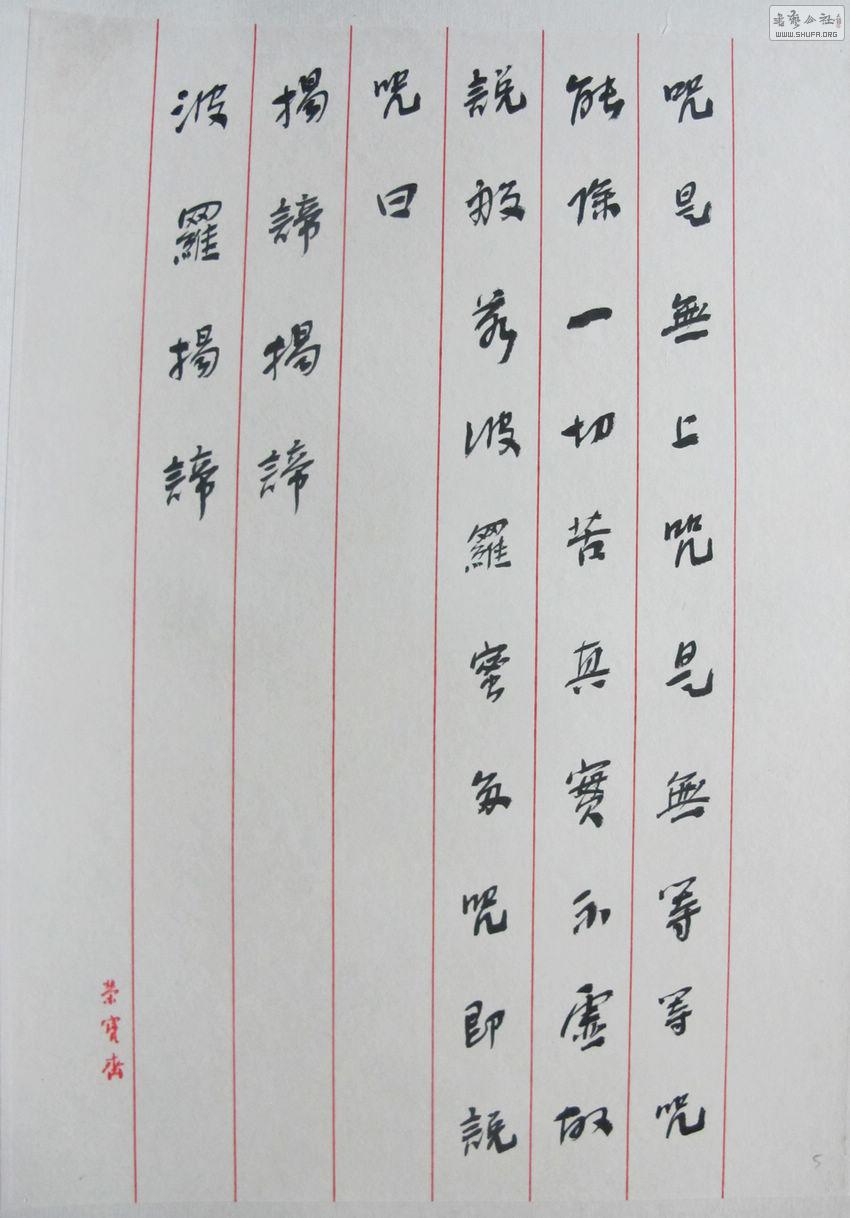 咒是無上咒是無等等咒
能除一切苦真實不虛故
說般若波羅蜜多咒即說
咒曰
揭諦揭諦
波羅揭諦
榮寶齋
書藝公社
WWW.SHUFA.ORG
5